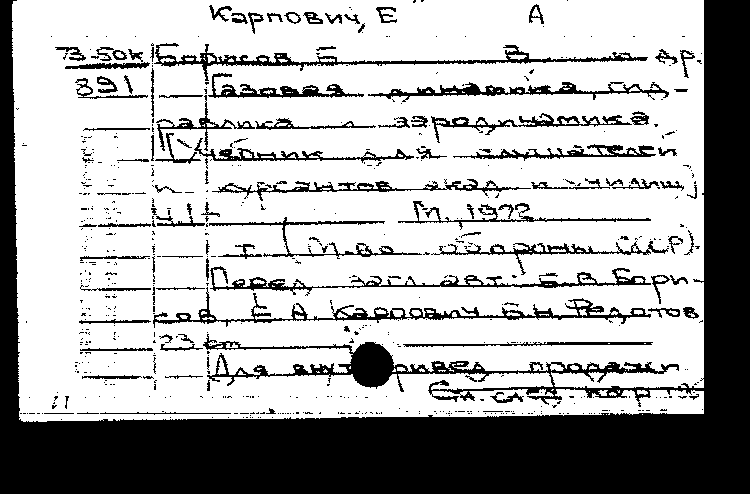 Карпович, Е А
73-50к Борисов, Б В и др.
891 Газовая динамика, гид-
равлика и аэродинамика.
[Учебник для слушателей
и курсантов акад и училищ].
Ч.1- М., 1972
т. (М-во обороны СССР).
Перед загл. авт.: Б.В Бори-
сов, Е А. Карпович Б.Н. Федотов
23 см
Для внут ривед продажи
См. след. карт
11